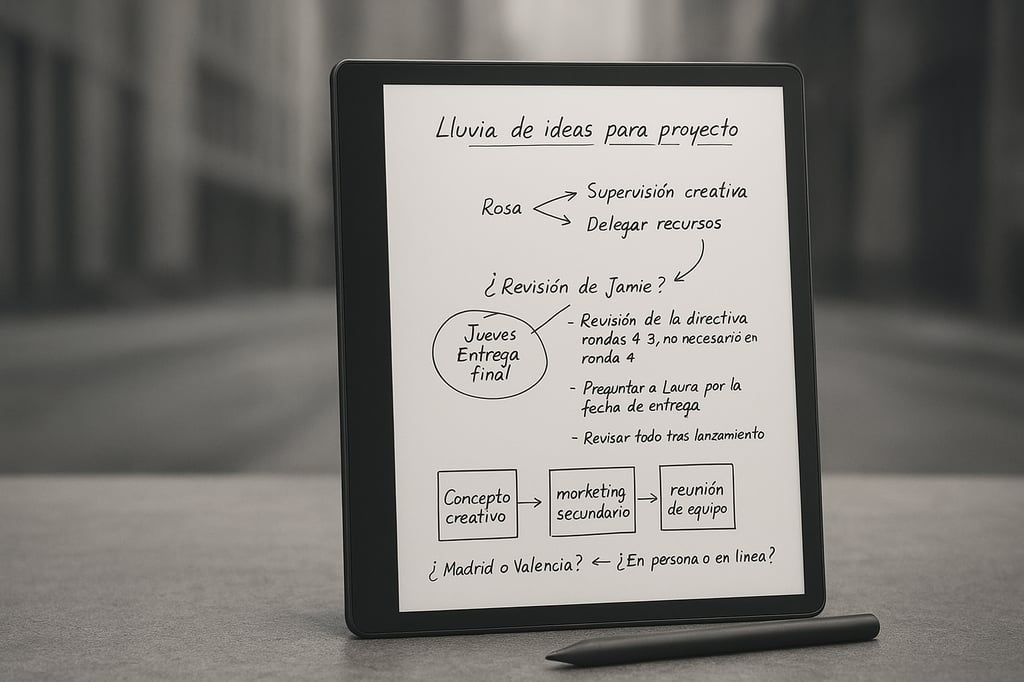 Lluvia de ideas para proyecto
Rosa
Supervisión creativa
Delegar recursos
¿Revisión de Jamie?
Jueves
Entrega
final
- Revisión de la directiva
rondas 4 3, no necesario en
ronda 4
- Preguntar a Laura por la
fecha de entrega
- Revisar todo tras lanzamiento
Concepto
creativo
morketing
secundario
reunión
de equipo
¿Madrid o Valencia? ← ¿En persona o en linea?